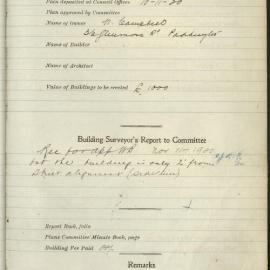 Plan deposited at Council Offices 10-11-20
Plan approved by Committee
Name of Owner W. Campbell
Glenmore Rd Paddington
Name of Builder
Name of Architect
Value of Buildings to be erected £ 1000
Building Surveyor's Report to Committee
Rec for app Nov 1920
but the building is only 2' from
street alignment
Report Book, folio
Plans Committee Minute Book, page
Building Fee Paid
Remarks